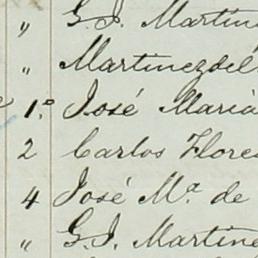 " G. I. Martine
" Martinez del
1.º José Maria
2 Carlos Flore
4 José M.ª de
" G. I. Martine